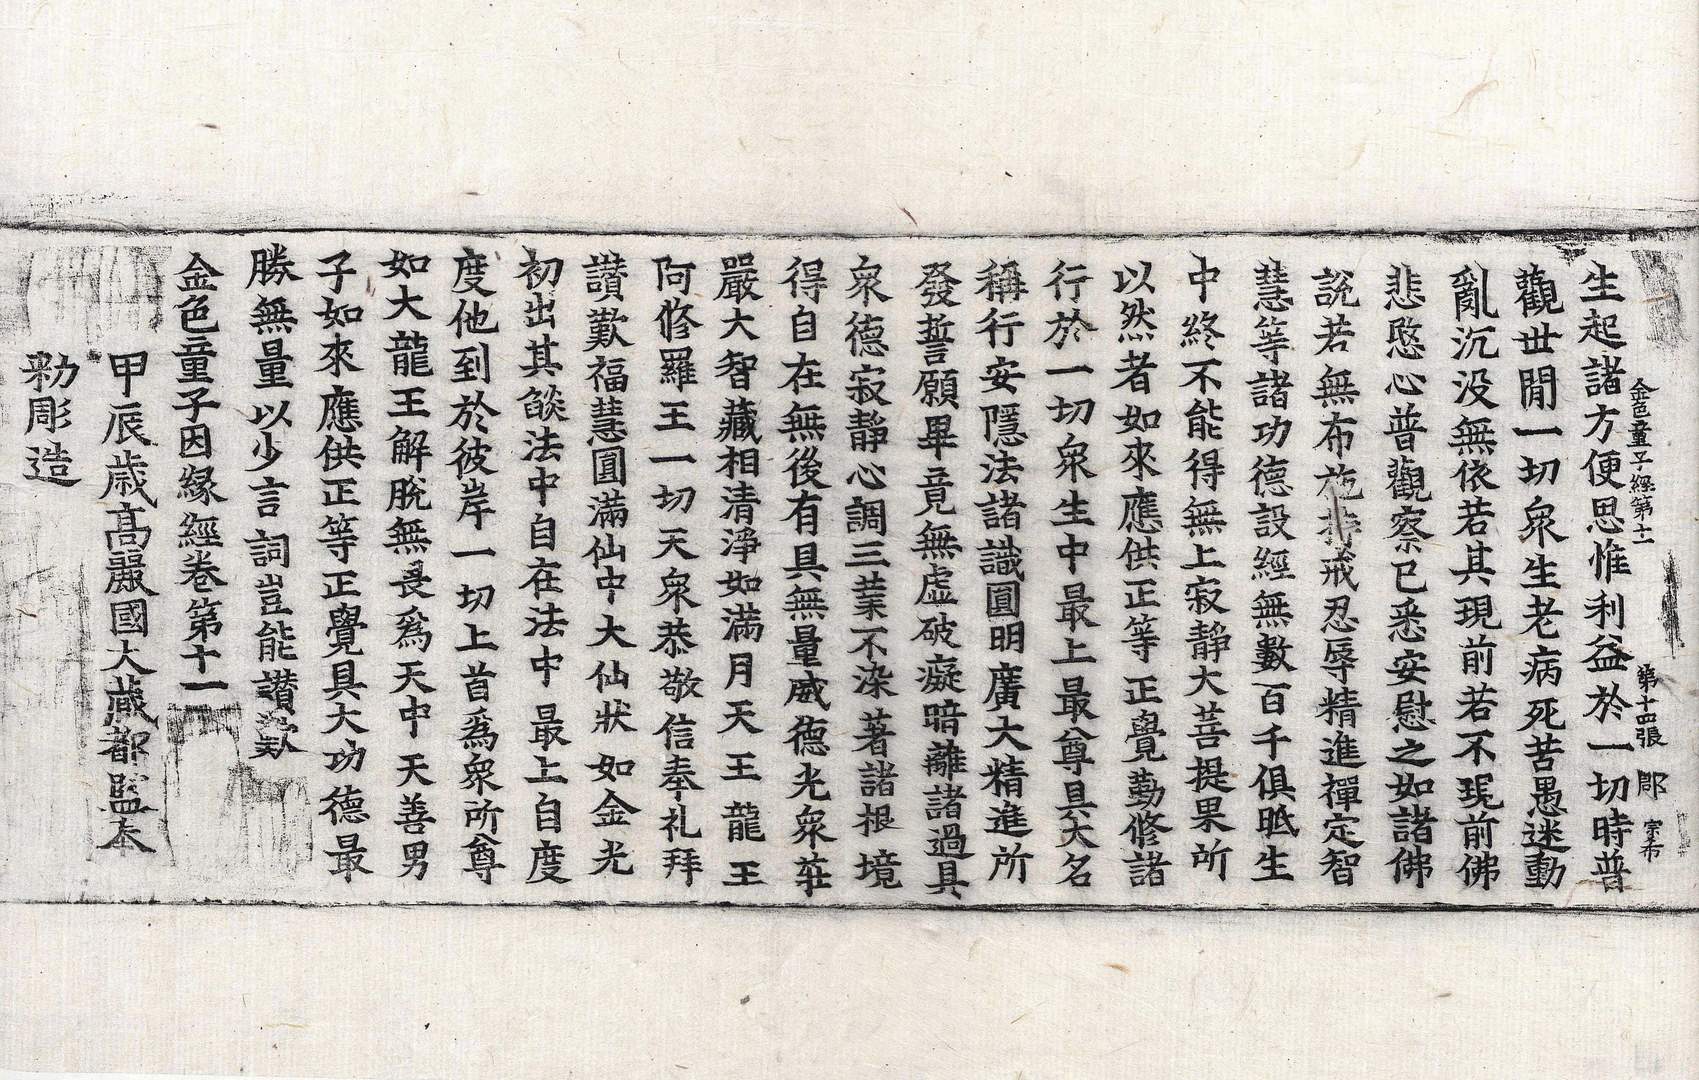 金色童子經第十一 第十四張 郞 宗布
生起諸方便思惟利益於一切時普
觀世閒一切衆生老病死苦愚迷動
亂沉没無依若其現前若不現前佛
悲愍心普觀察已悉安慰之如諸佛
說若無布施持戒忍辱精進禪定智
慧等諸功德設經無數百千俱胝生
中終不能得無上寂靜大菩提果所
以然者如來應供正等正覺勤修諸
行於一切衆生中最上最尊具大名
稱行安隱法諸識圓明廣大精進所
發誓願畢竟無虛破癡暗離諸過具
衆德寂靜心調三業不染著諸根境
得自在無後有具無量威德光衆莊
嚴大智藏相清淨如滿月天王龍王
阿修羅王一切天衆恭敬信奉礼拜
讃歎福慧圓滿仙中大仙狀如金光
初出其燄法中自在法中最上自度
度他到於彼岸一切上首爲衆所尊
如大龍王解脫無畏爲天中天善男
子如來應供正等正覺具大功德最
勝無量以少言詞豈能讃歎
金色童子因緣經卷第十一
甲辰歳高麗國大藏都監奉
勑彫造